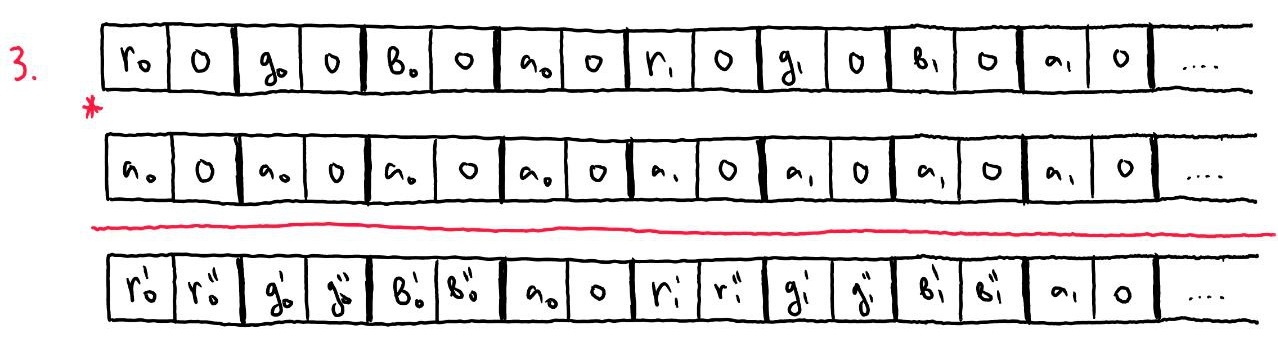 3. r₀ 0 g₀ 0 B₀ 0 a₀ 0 r₁ 0 g₁ 0 B₁ 0 a₁ 0 ....
*
a₀ 0 a₀ 0 a₀ 0 a₀ 0 a₁ 0 a₁ 0 a₁ 0 a₁ 0 ....
r₀' r₀'' g₀' g₀'' B₀' B₀'' a₀ 0 r₁' r₁'' g₁' g₁'' B₁' B₁'' a₁ 0 ....